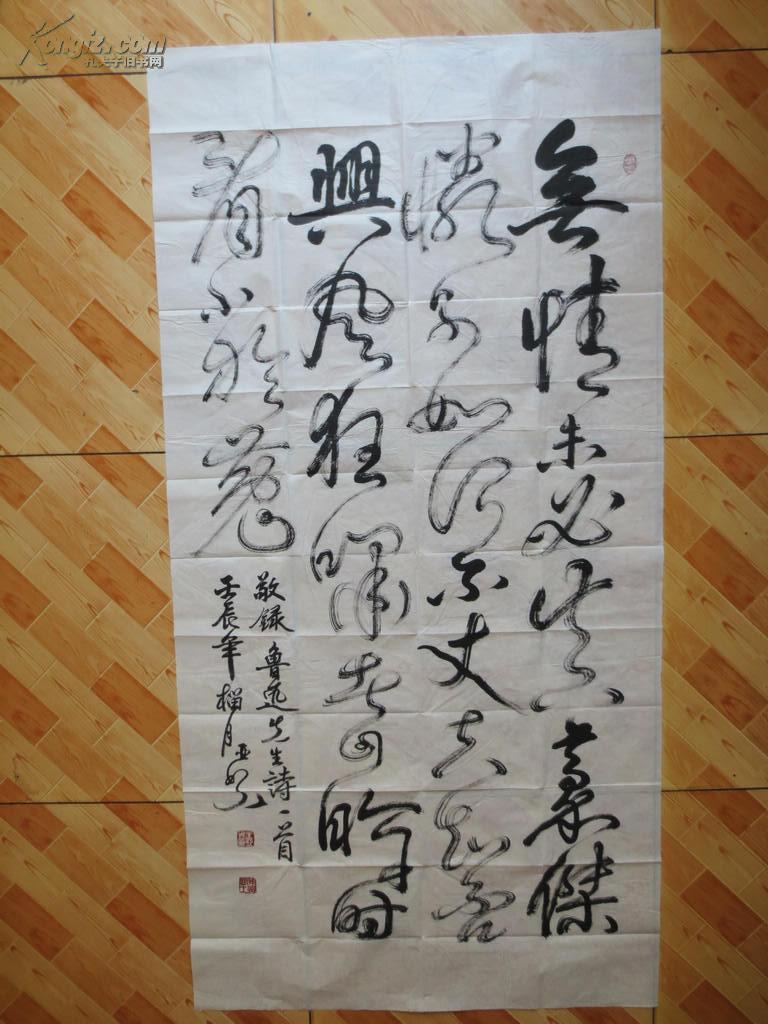 Kongfz.com
孔夫子旧书网
無情未必真豪傑
憐子如何不丈夫知否
興風狂嘯者回眸时
看小於菟
敬録魯迅先生詩一首
壬辰年榴月亚